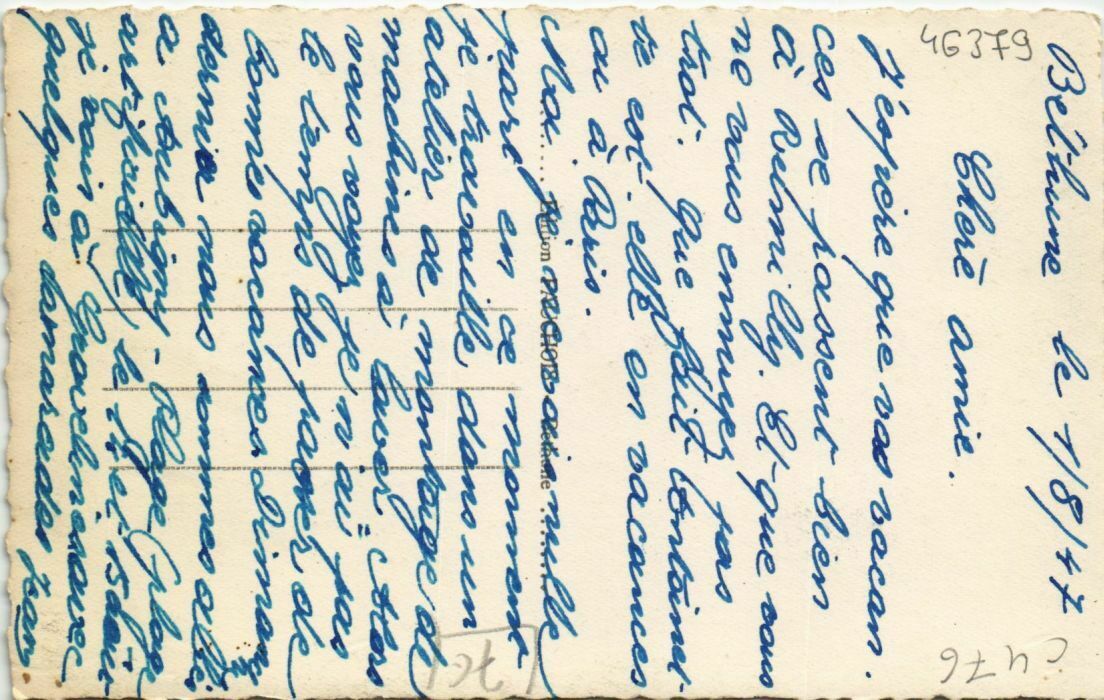 Béthune le 1/8/47
Chère amie.
J'éspère que vos vacan.
ces se passent bien
à Rumilly. Et que vous
ne vous ennuyez pas
trot. Que fait
te est-elle en vacances
ou à Paris.
Moi je nulle
part en ce moment
je travaille dans un
atelier de montage de
machines à laver. Alors
vous voyez je n'ai pas
le temps de passer de
bonnes vacances Diman
dernier nous sommes allé
a Aubigny - Plage
le 15 août
je vais à Gravelines avec
quelques camarades
Edition
46379
C 476